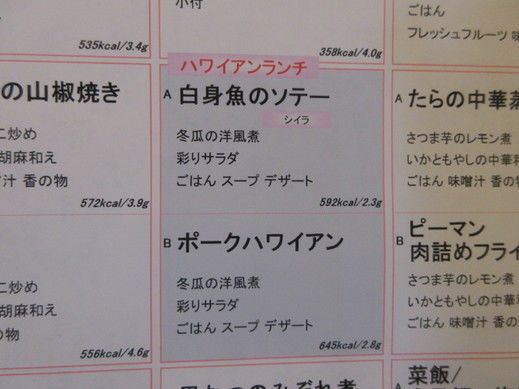 小付
535kcal/3.4g
358kcal/4.0g
ごはん
フレッシュフルーツ
の山椒焼き
に炒め
胡麻和え
汁 香の物
572kcal/3.9g
に炒め
胡麻和え
の物
556kcal/4.6g
ハワイアンランチ
A 白身魚のソテー
シイラ
冬瓜の洋風煮
彩りサラダ
ごはん スープ デザート
592kcal/2.3g
B ポークハワイアン
冬瓜の洋風煮
彩りサラダ
ごはん スープ デザート
645kcal/2.8g
A たらの中華蒸
さつま芋のレモン煮
いかともやしの中華和
ごはん 味噌汁 香の物
B ピーマン
肉詰めフライ
さつま芋のレモン煮
いかともやしの中華
ごはん 味噌汁 香の物
菜飯/